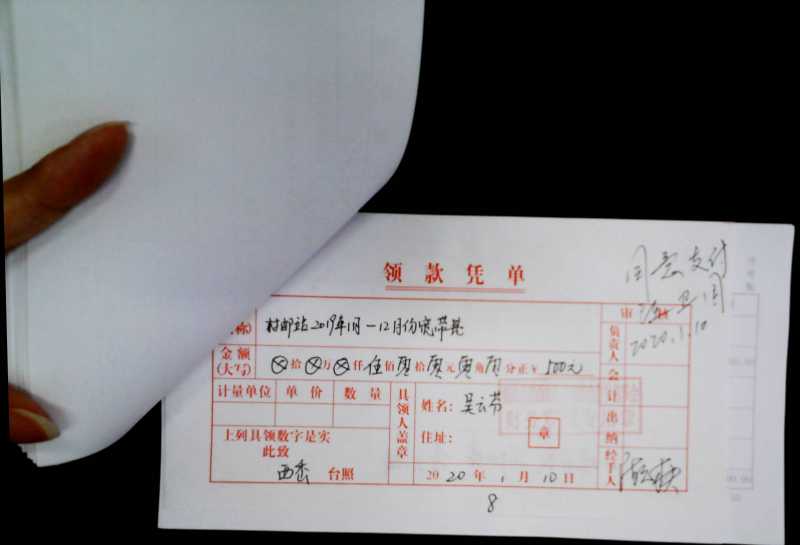 领款凭单
同意支付
2020.1.10
称) 村邮站2019年1月—12月份宽带费
审
负责人
金额
(大写) ⊗拾⊗万⊗仟伍佰零拾零元零角零分正¥500元
会计
计量单位 单价 数量
具领人盖章
姓名: 吴云芬
住址:
章
出纳
上列具领数字是实
此致
西岙 台照
2020年1月10日
经手人
8